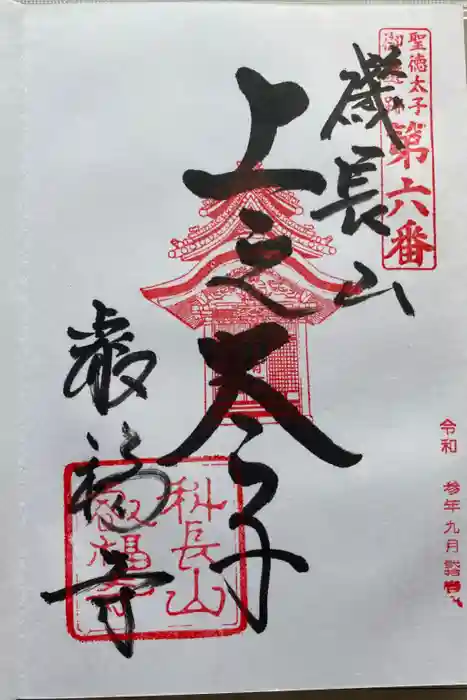 聖徳太子
御遺跡
第六番
磯長山
上之太子
叡福寺
科長山
叡福寺
令和 参年 九月